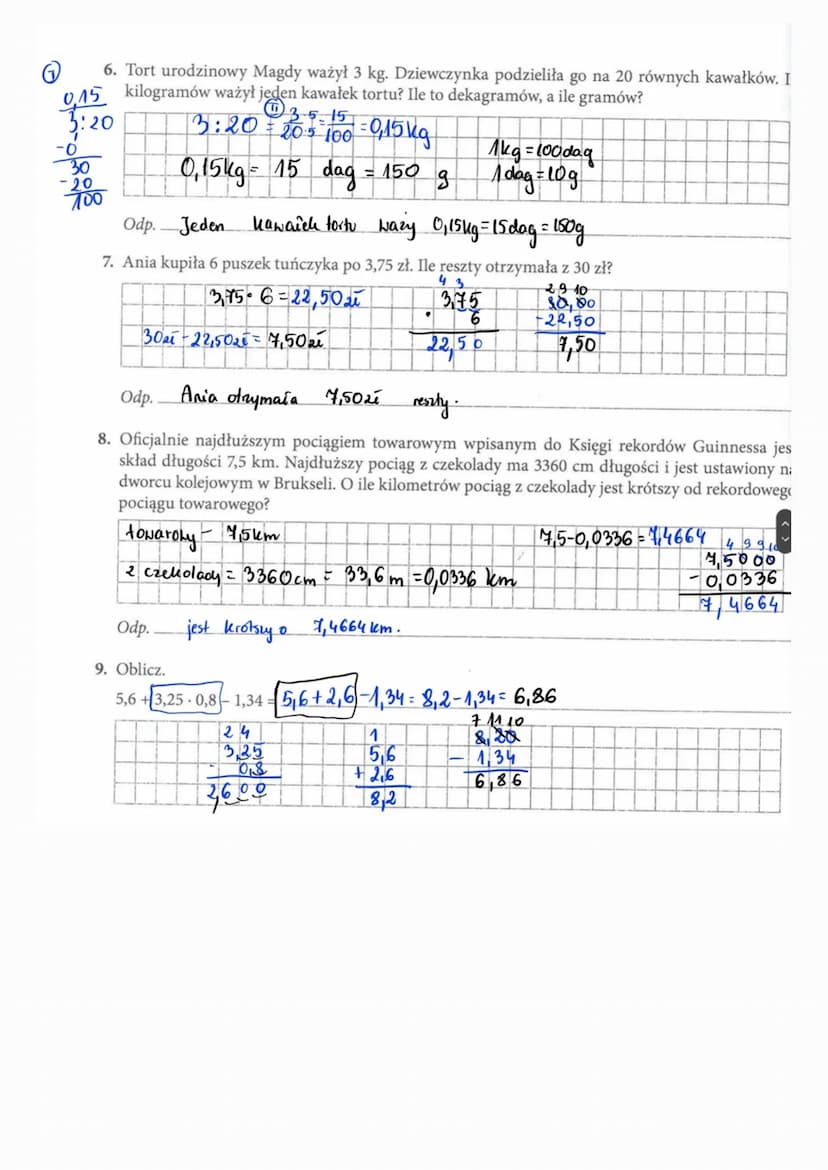 I
6. Tort urodzinowy Magdy ważył 3 kg. Dziewczynka podzieliła go na 20 równych kawałków. I
kilogramów ważył jeden kawałek tortu? Ile to dekagramów, a ile gramów?
0,15
3:20
-0
30
-20
100
II
3:20 = 3·5/20·5 = 15/100 = 0,15kg
1kg = 100dag
0,15kg = 15 dag = 150 g
1dag = 10g
Odp. Jeden kawałek tortu waży 0,15kg = 15dag = 150g
7. Ania kupiła 6 puszek tuńczyka po 3,75 zł. Ile reszty otrzymała z 30 zł?
3,75 · 6 = 22,50zł
30zł - 22,50zł = 7,50zł
4 3
3,75
· 6
22,50
2 9 10
30,00
-22,50
7,50
Odp. Ania otrzymała 7,50zł reszty.
8. Oficjalnie najdłuższym pociągiem towarowym wpisanym do Księgi rekordów Guinnessa jes
skład długości 7,5 km. Najdłuższy pociąg z czekolady ma 3360 cm długości i jest ustawiony n
dworcu kolejowym w Brukseli. O ile kilometrów pociąg z czekolady jest krótszy od rekordoweg
pociągu towarowego?
towarowy - 7,5km
z czekolady = 3360cm = 33,6m = 0,0336 km
7,5-0,0336 = 7,4664
4 9 9 10
7,5000
-0,0336
7,4664
Odp. jest krótszy o 7,4664 km.
9. Oblicz.
5,6 + 3,25 · 0,8 - 1,34 = 5,6 + 2,6 - 1,34 = 8,2 - 1,34 = 6,86
2 4
3,25
· 0,8
2,600
1
5,6
+ 2,6
8,2
7 11 10
8,20
- 1,34
6,86